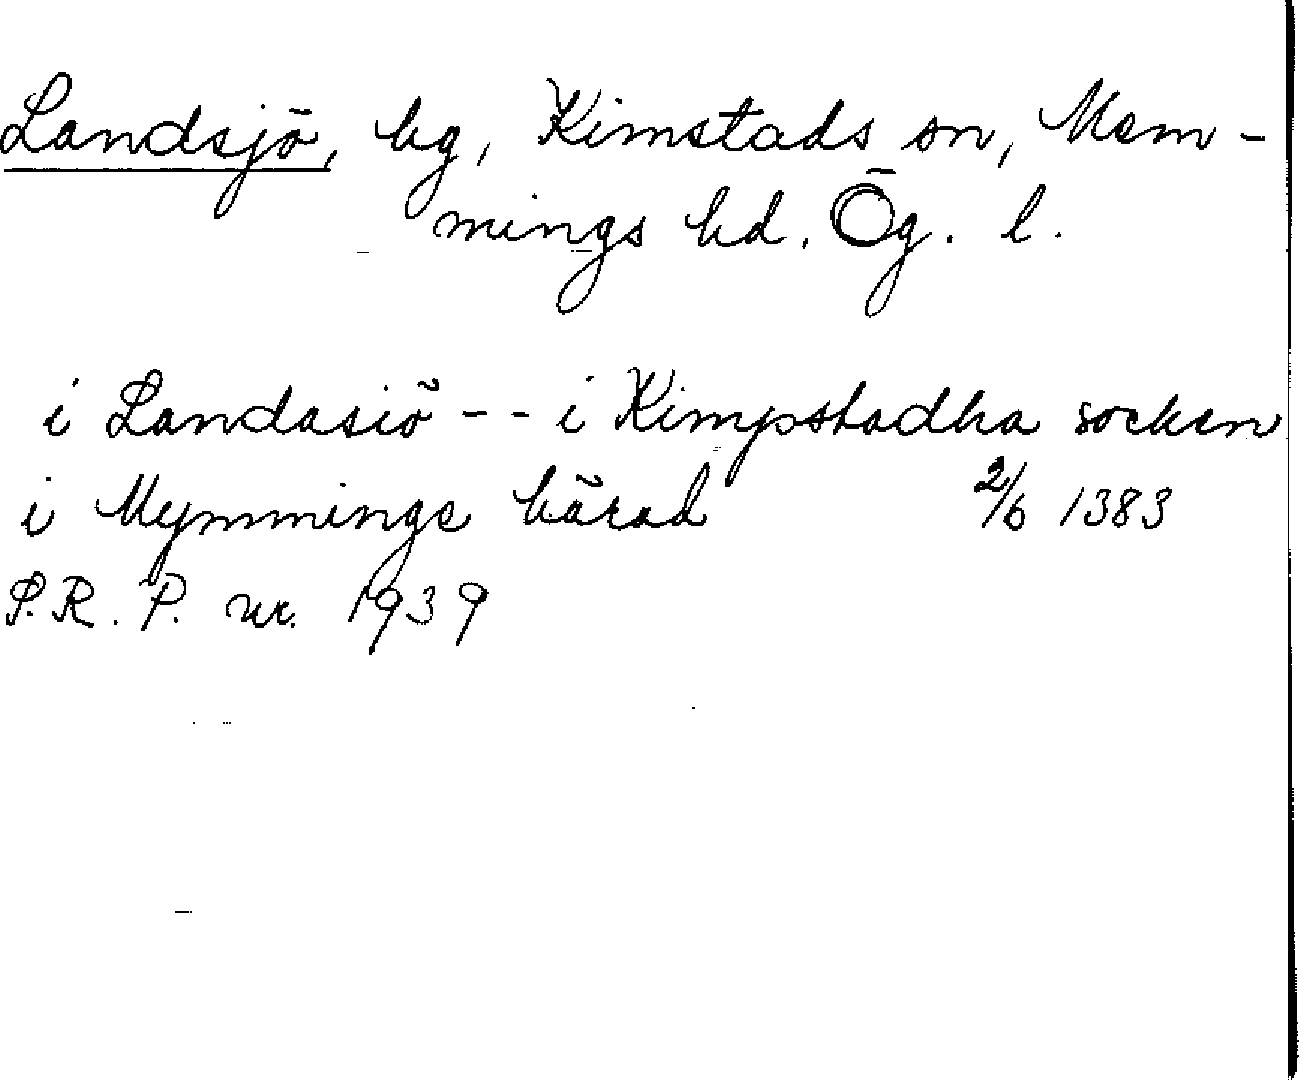 Landsjö, hg, Kimstads sn, Mem-
mings hd. Ög. l.
i Landasiö -- i Kimpstadha socken
i Mymmings härad 2/6 1383
S.R.P. nr. 1939